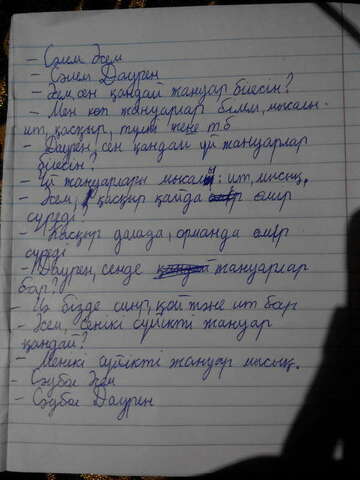 - Сәлем Жем
- Сәлем Даурен
- Жем, сен қандай жануар білесін?
- Мен көп жануарлар білем, мысалы:
ит, қасқыр, түлкі және т.б
- Даурен, сен қандай үй жануарлар
білесін?
- Үй жануарлары мысалы: ит, мысық,
- Жем, қасқыр қайда өмір
сүреді
- Қасқыр далада, орманда өмір
сүреді
- Даурен, сенде жануарлар
бар?
- Иә бізде сиыр, қой және ит бар
- Жем, сенікі сүйікті жануар
қандай?
- Менікі сүйікті жануар мысық.
- Саубол Жем
- Саубол Даурен